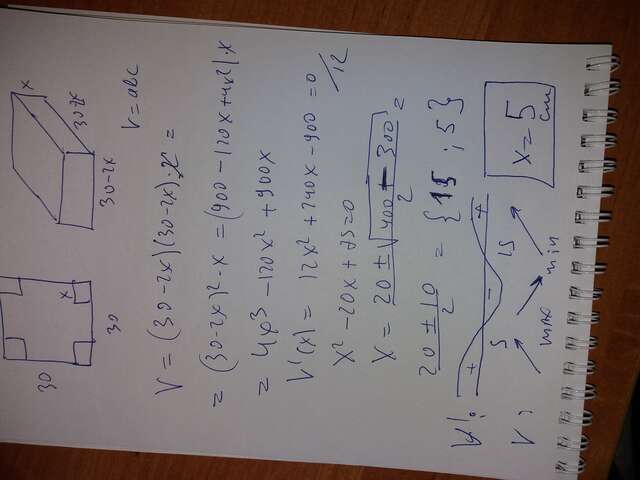 30
x
30
x
30-2x
30-2x
V = abc
V = (30-2x)(30-2x)·x =
= (30-2x)²·x = (900 - 120x + 4x²)·x
= 4x³ - 120x² + 900x
V'(x) = 12x² +240x - 900 = 0 /12
x² - 20x + 75 = 0
x = 20 ± √400 - 300 / 2 =
20 ± 10 / 2 = {15 ; 5}
V': + 5 - 15 +
V: max min
x = 5 cm